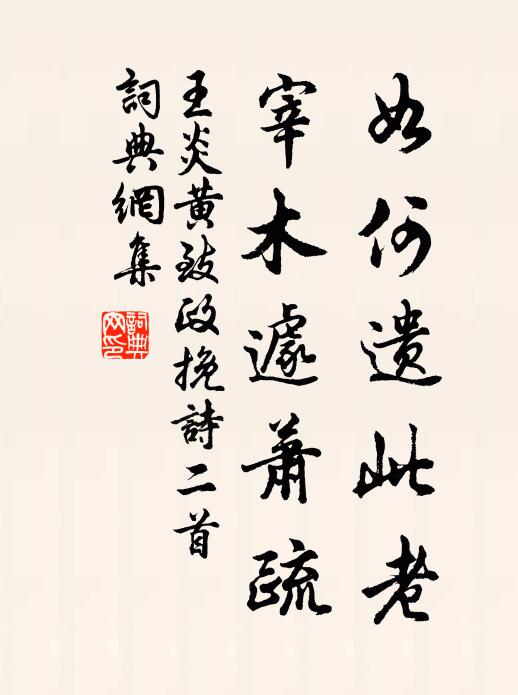 如何遺此老
宰木遽蕭疏
王炎黃致政挽詩二首
詞典網集
詞典
网印